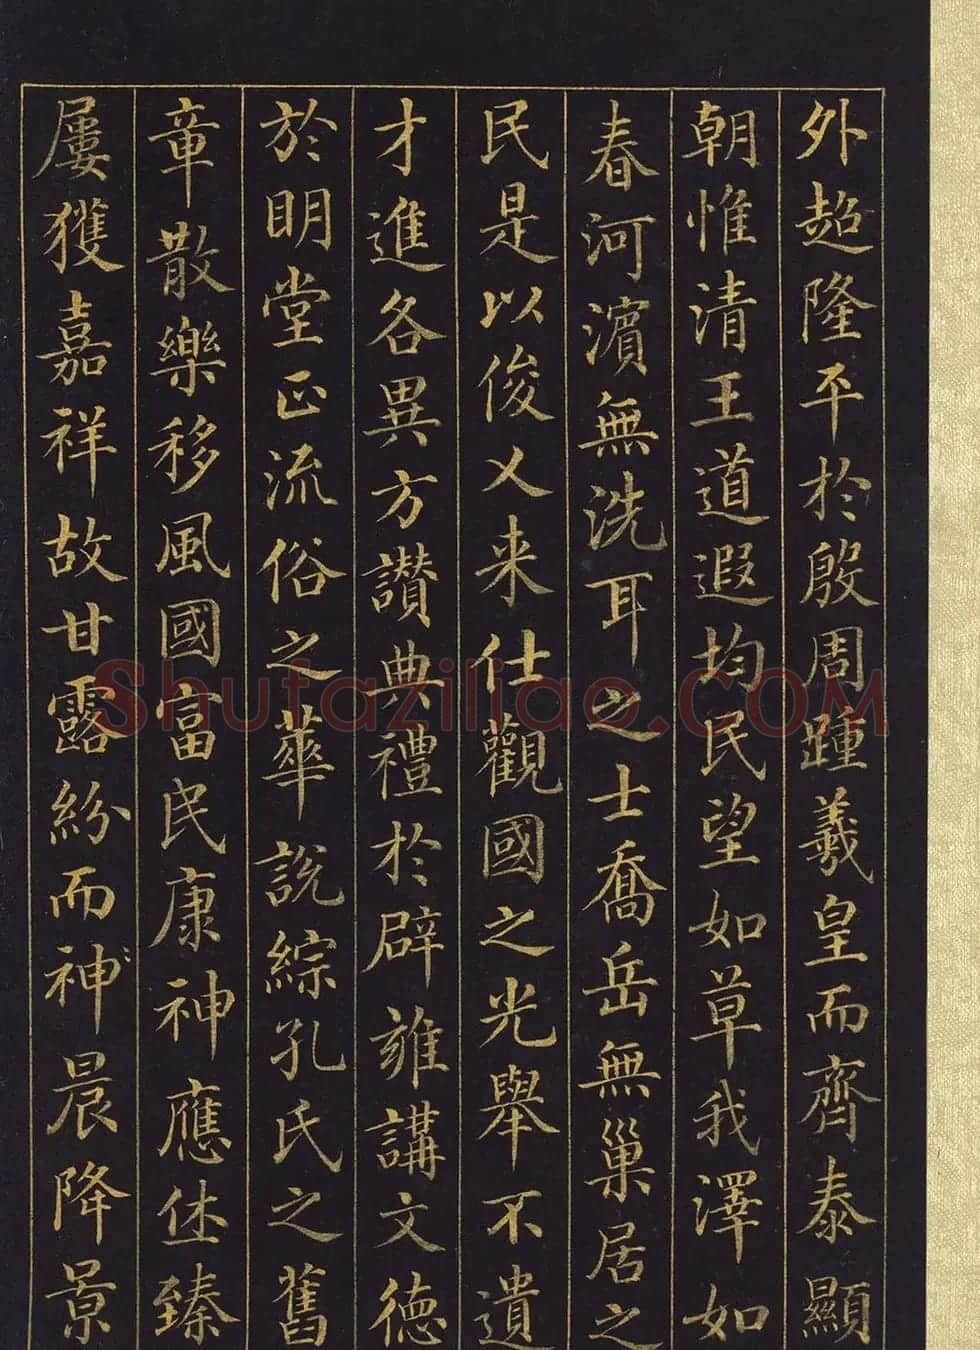 外超隆平於殷周踵羲皇而齊泰顯
朝惟清王道遐均民望如草我澤如
春河濵無洗耳之士喬岳無巢居之
民是以俊乂来仕觀國之光舉不遺
才進各異方讃典禮於辟雍講文德
於明堂正流俗之華說綜孔氏之舊
章散樂移風國富民康神應休臻
屢獲嘉祥故甘露紛而神晨降景
Shufaziliao.COM